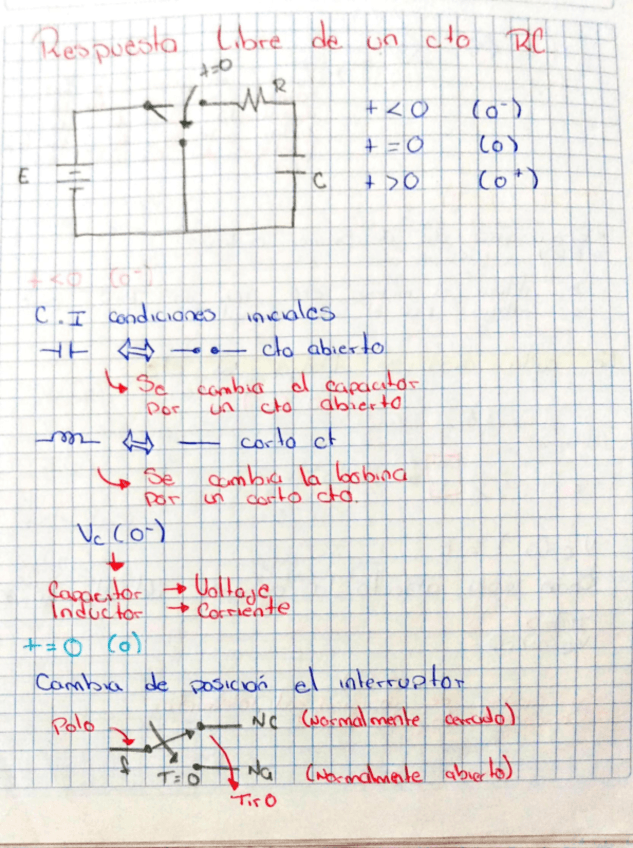 Respuesta Libre de un cto RC
t=0
R
E
C
t<0 (0⁻)
t=0 (0)
t>0 (0⁺)
t<0 (0⁻)
C.I condiciones iniciales
cto abierto
Se cambia el capacitor
por un cto abierto
corto ct
Se cambia la bobina
por un corto cto.
Vc (0⁻)
Capacitor → Voltaje
Inductor → Corriente
t=0 (0)
Cambia de posición el interruptor
Polo
NC (Normalmente cerrado)
T=0
Na (Normalmente abierto)
Tiro